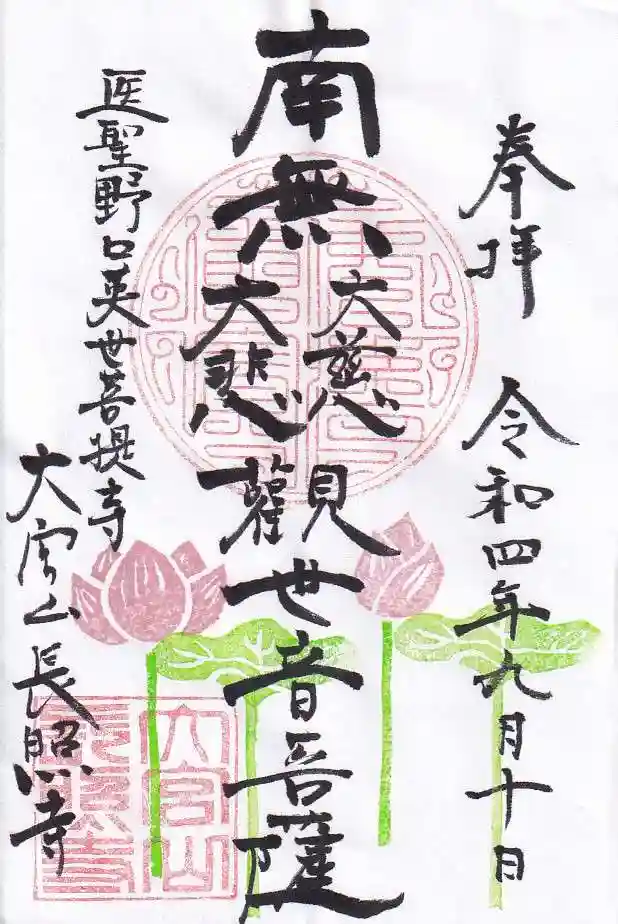 奉拝 令和四年九月十日
南無大慈大悲觀世音菩薩
医聖野口英世菩提寺
長照寺
長照寺